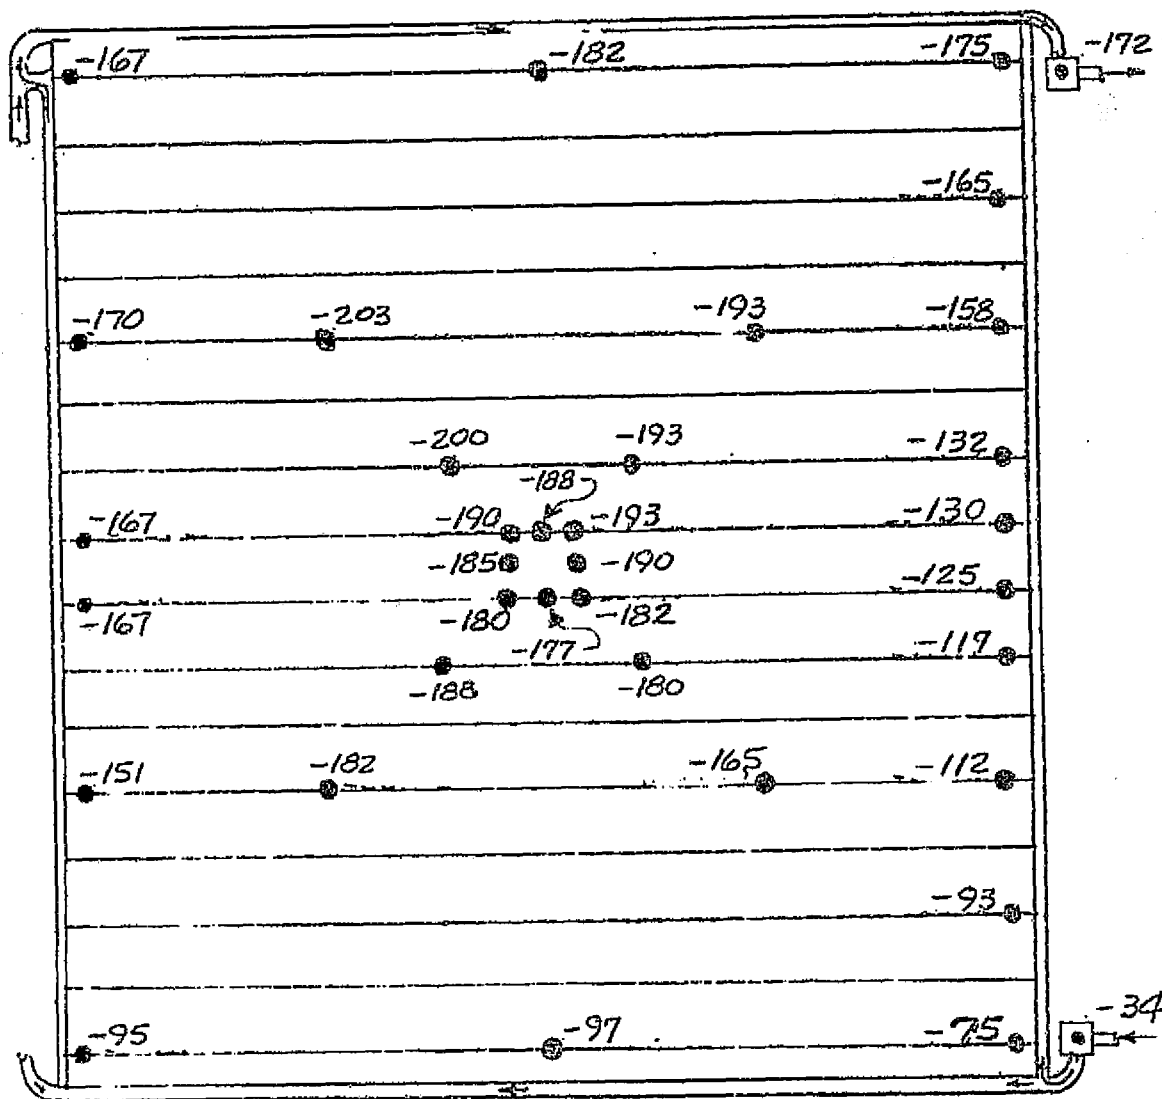 -167 -182 -175 -172
-165
-170 -203 -193 -158
-200 -193 -132
-188
-167 -190 -193 -130
-185 -190 -125
-167 -180 -182
-177 -119
-188 -180
-151 -182 -165 -112
-93
-34
-95 -97 -75